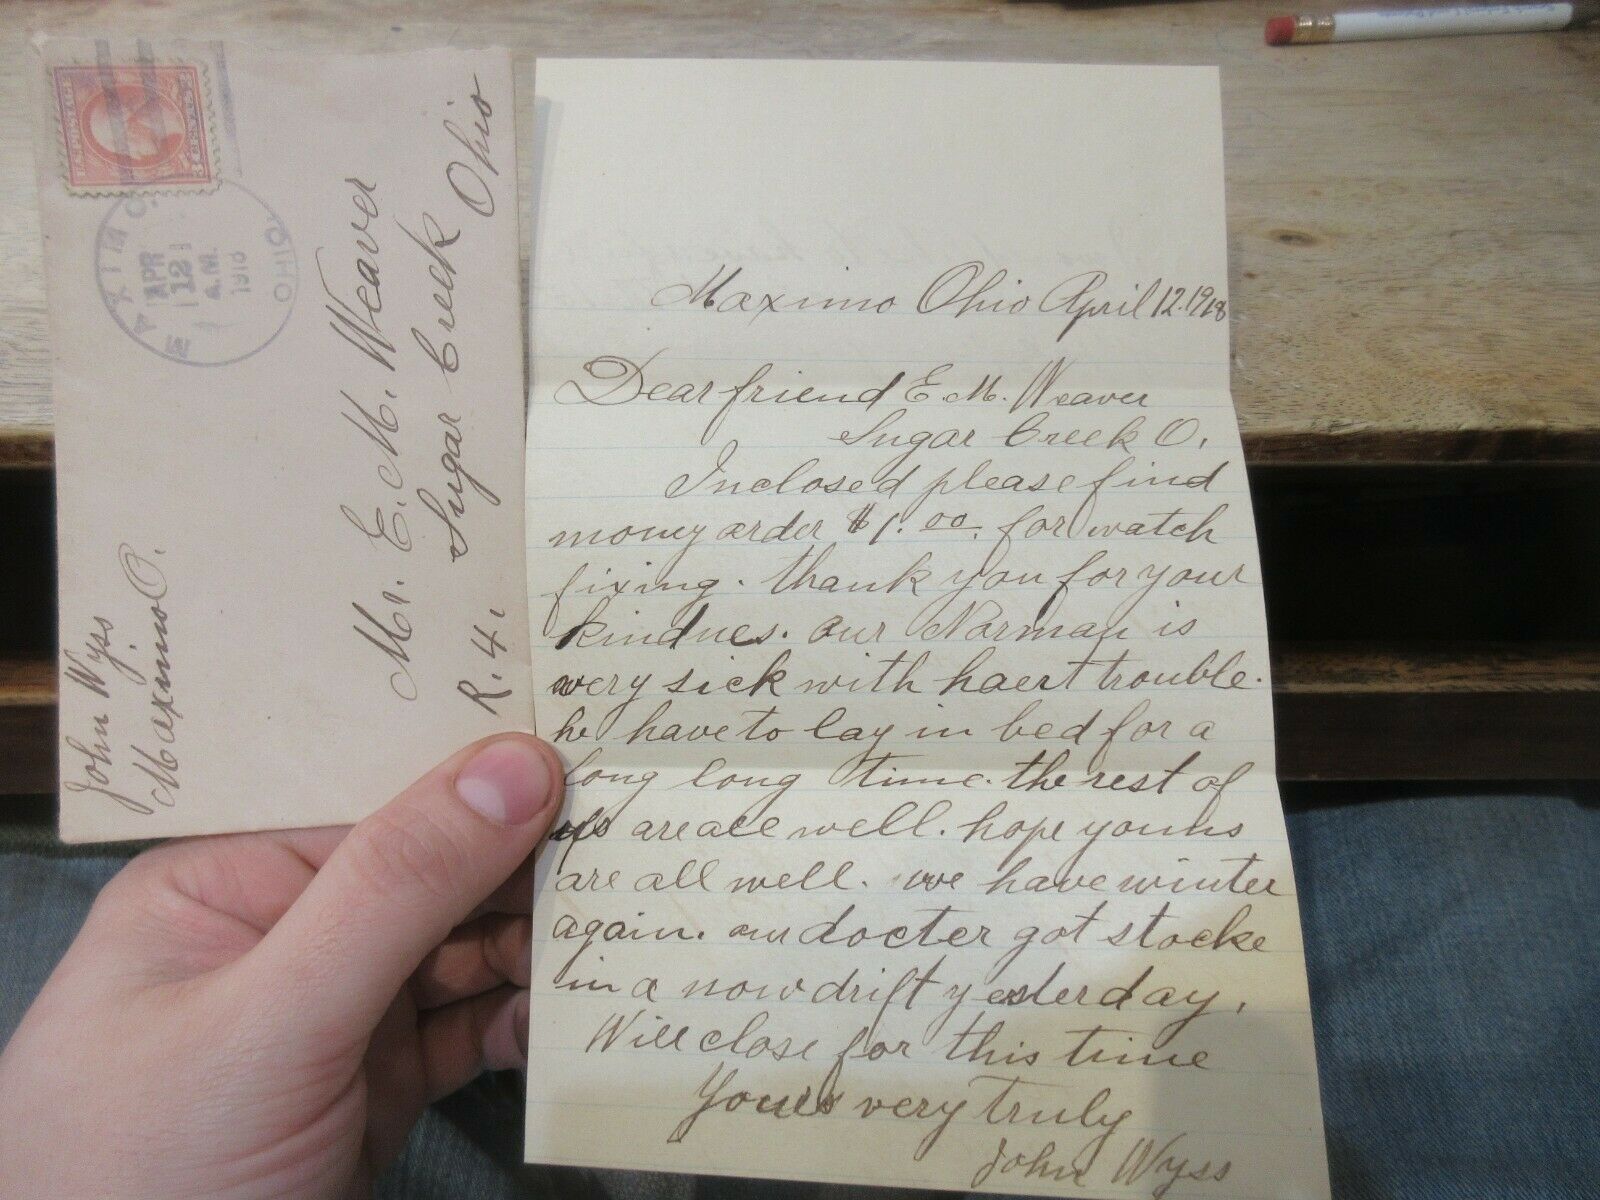 U.S. POSTAGE
MAXIMO
APR
12
A.M.
1918
OHIO
Mr. E. M. Weaver
Sugar Creek
R. 4. Ohio
John Wyss
Maximo O.
Maximo Ohio April 12. 1918
Dear friend E. M. Weaver
Sugar Creek O.
Inclosed please find
money arder $1.00. for watch
fixing. thank you for your
kindnes. our Norman is
very sick with haert trouble.
he have to lay in bed for a
long long time. the rest of
us are all well. hope youns
are all well. we have winter
again. our docter got stocke
in a nowdrift yesterday.
Will close for this time
Yours very truly
John Wyss